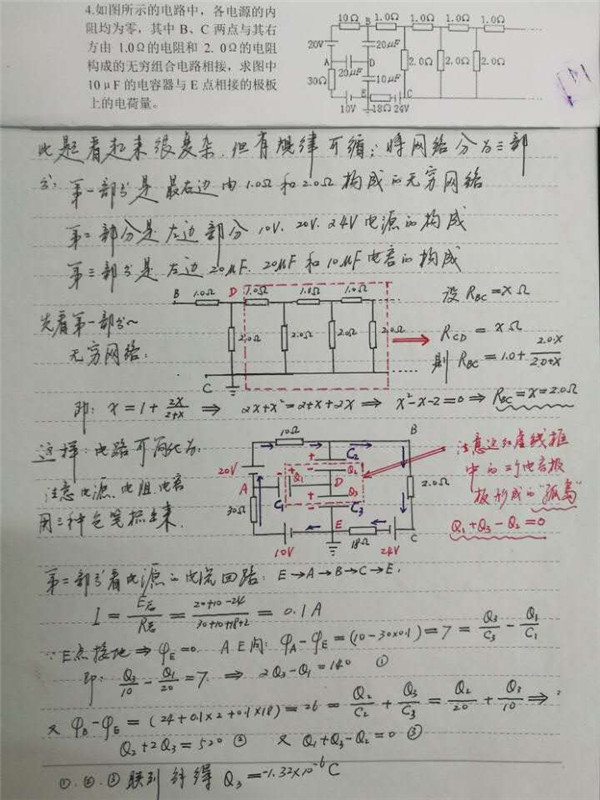 4.如图所示的电路中，各电源的内
阻均为零，其中 B、C 两点与其右
方由 1.0Ω的电阻和 2.0Ω的电阻
构成的无穷组合电路相接，求图中
10μF 的电容器与 E 点相接的极板
上的电荷量。
10Ω B 1.0Ω 1.0Ω 1.0Ω
20V 20μF
A D 2.0Ω 2.0Ω 2.0Ω
30Ω 20μF 10μF
10V E 18Ω 24V C
此题看起来很复杂，但有规律可循：将网络分为三部
分：第一部分是最右边由1.0Ω和2.0Ω构成的无穷网络
第二部分是左边部分10V、20V、24V电源的构成
第三部分是左边20μF、20μF和10μF电容的构成
B 1.0Ω D 1.0Ω 1.0Ω 1.0Ω
设 RBC=xΩ
先看第一部分~
无穷网络：
2.0Ω 2.0Ω 2.0Ω 2.0Ω
RCD = xΩ
则 RBC=1.0+2.0·x/2.0+x
C
即：x=1+2x/2+x ⇒ 2x+x²=2+x+2x ⇒ x²-x-2=0 ⇒ RBC=x=2.0Ω
这样：电路可简化为：
注意电源、电阻、电容
用三种色笔标出来.
10Ω B
20V C2 Q2
A Q1 D 2.0Ω
C1 Q3
30Ω C3
E C
10V 18Ω 24V
注意这红虚线框
中的三个电容极
板形成的"孤岛"
Q1+Q3-Q2=0
第二部分看电源的电流回路：E→A→B→C→E.
I=E总/R总=20+10-24/30+10+18+2=0.1A
∵E点接地⇒φE=0 A.E间：φA-φE=(10-30×0.1)=7=Q3/C3-Q1/C1
即：Q3/10-Q1/20=7 ⇒ 2Q3-Q1=140 ①
又 φB-φE=(24+0.1×2+0.1×18)=26=Q2/C2+Q3/C3=Q2/20+Q3/10⇒
Q2+2Q3=520 ② 又 Q1+Q3-Q2=0 ③
①.②.③联列解得 Q3=-1.32×10⁻⁶C